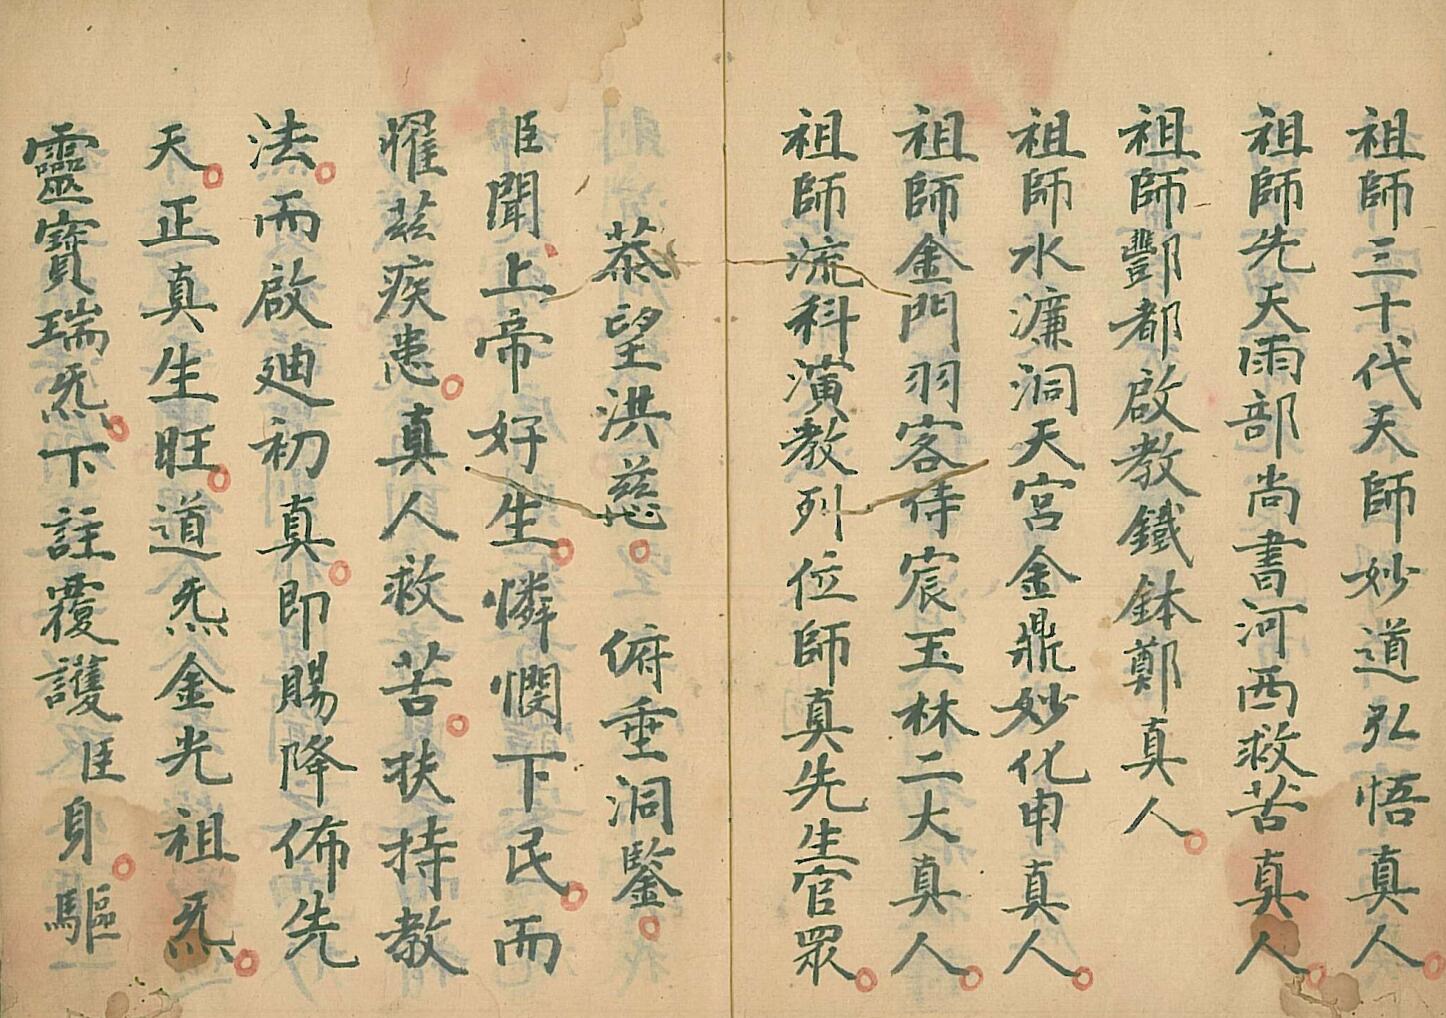 祖師三十代天師妙道弘悟真人
祖師先天雨部尚書河西救苦真人
祖師酆都啟教鐵鉢鄭真人
祖師水濂洞天宮金鼎妙化申真人
祖師金門羽客侍宸玉林二大真人
祖師流科演教列位師真先生官眾
恭望洪慈 俯垂洞鑒
臣聞上帝好生憐憫下民而
懼茲疾患真人救苦扶持教
法而啟廸初真即賜降佈先
天正真生旺道炁金光祖炁
靈寶瑞炁下註覆護臣身驅